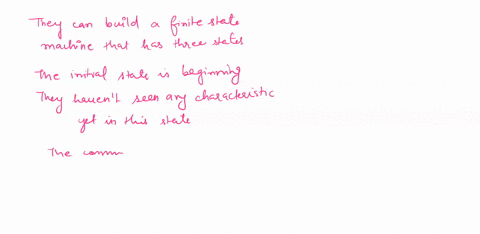 They can build a finite state
machine that has three states
The initial state is beginning
They haven't seen any characteristic
yet in this state
The comm